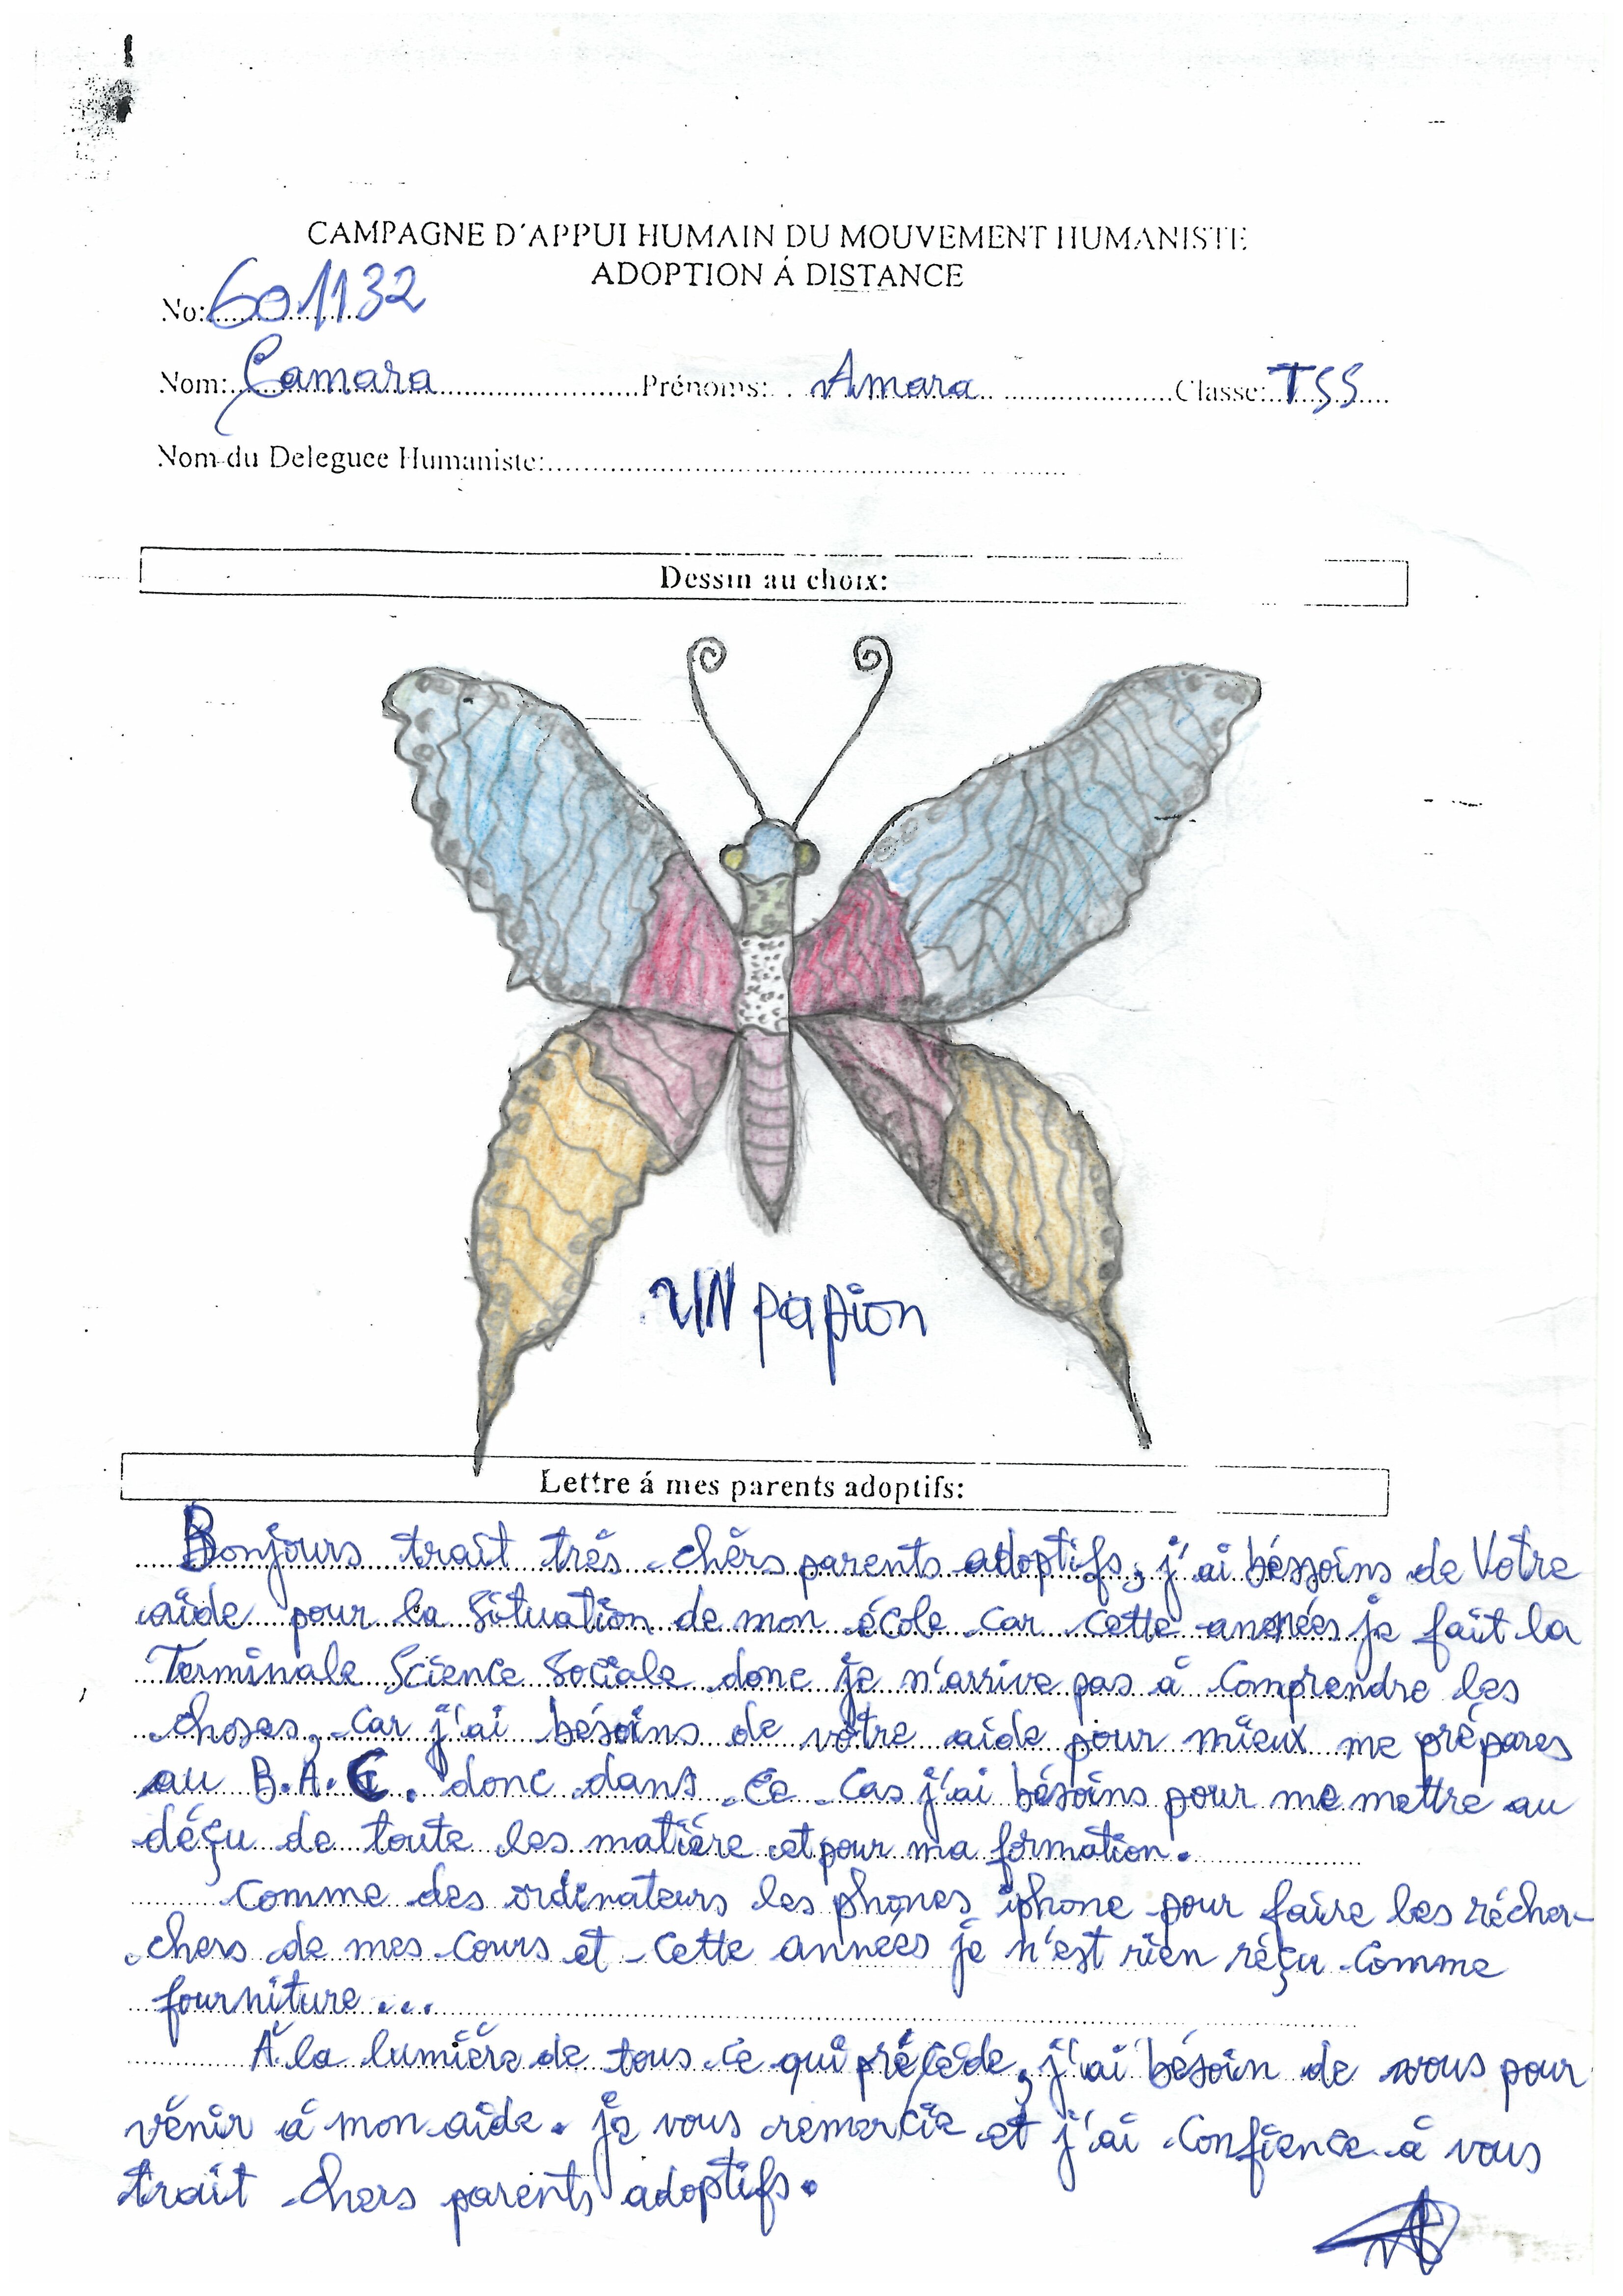 CAMPAGNE D'APPUI HUMAIN DU MOUVEMENT HUMANISTE
ADOPTION Á DISTANCE
No: 601132
Nom: Camara Prénoms: Amara Classe: TSS
Nom du Deleguee Humaniste:
Dessin au choix:
UN papion
Lettre á mes parents adoptifs:
Bonjours trait très chèrs parents adoptifs, j'ai béssoins de Votre
aide pour la Situation de mon école car cette années je fait la
Terminale Science Sociale donc je n'arrive pas à Comprendre les
choses, car j'ai bésoins de vôtre aide pour mieux me prépares
au B.A.C. donc dans ce cas j'ai bésoins pour me mettre au
déçu de toute les matière et pour ma formation.
Comme des ordinateurs les phones iphone pour faire les récher-
chers de mes cours et cette années je n'est rien réçu comme
fourniture...
À la lumière de tous ce qui précède, j'ai bésoin de vous pour
vénir à mon aide. je vous remercie et j'ai Confience à vous
trait chers parents adoptifs.